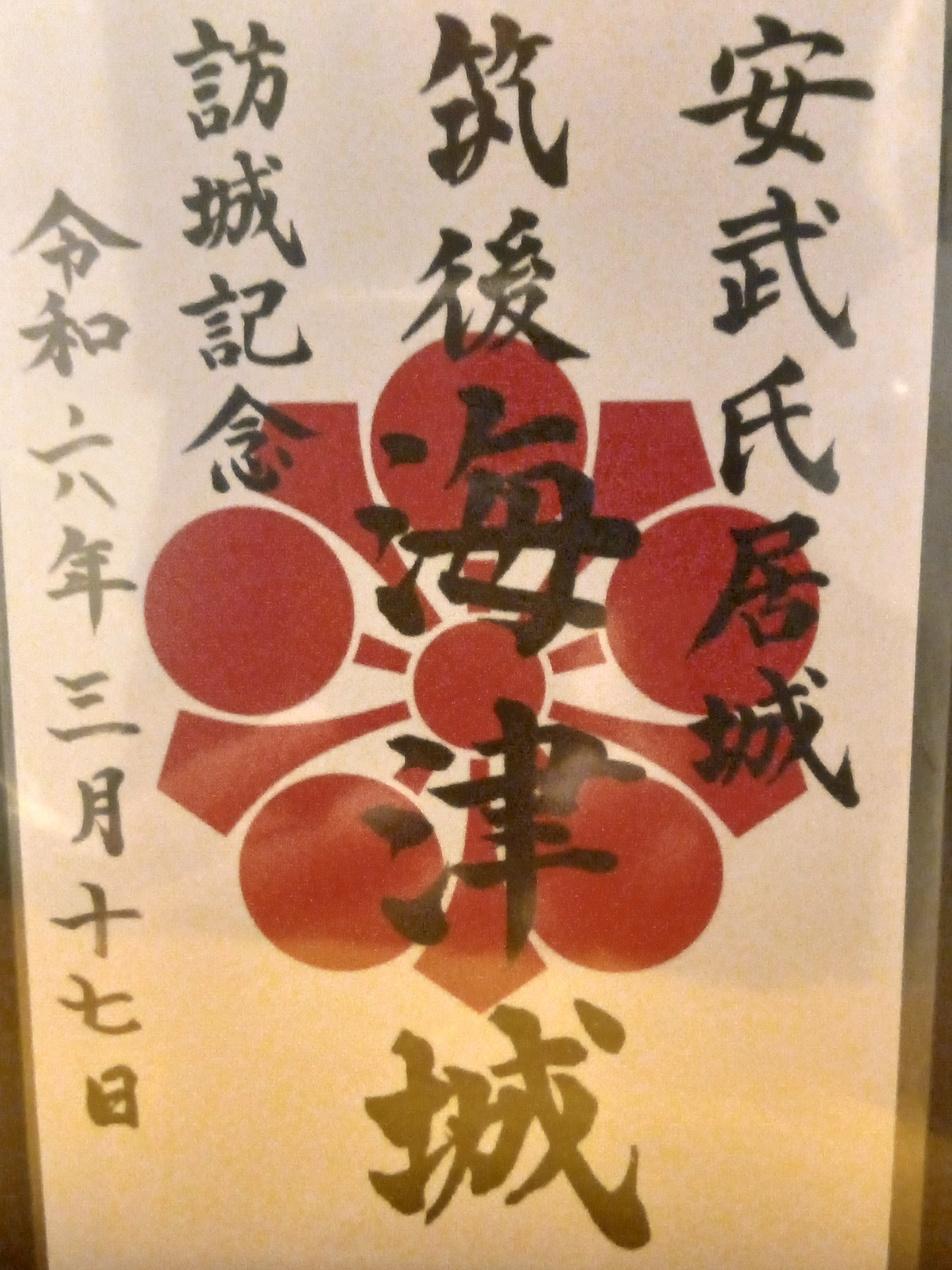 安武氏居城
筑後海津城
訪城記念
令和六年三月十七日